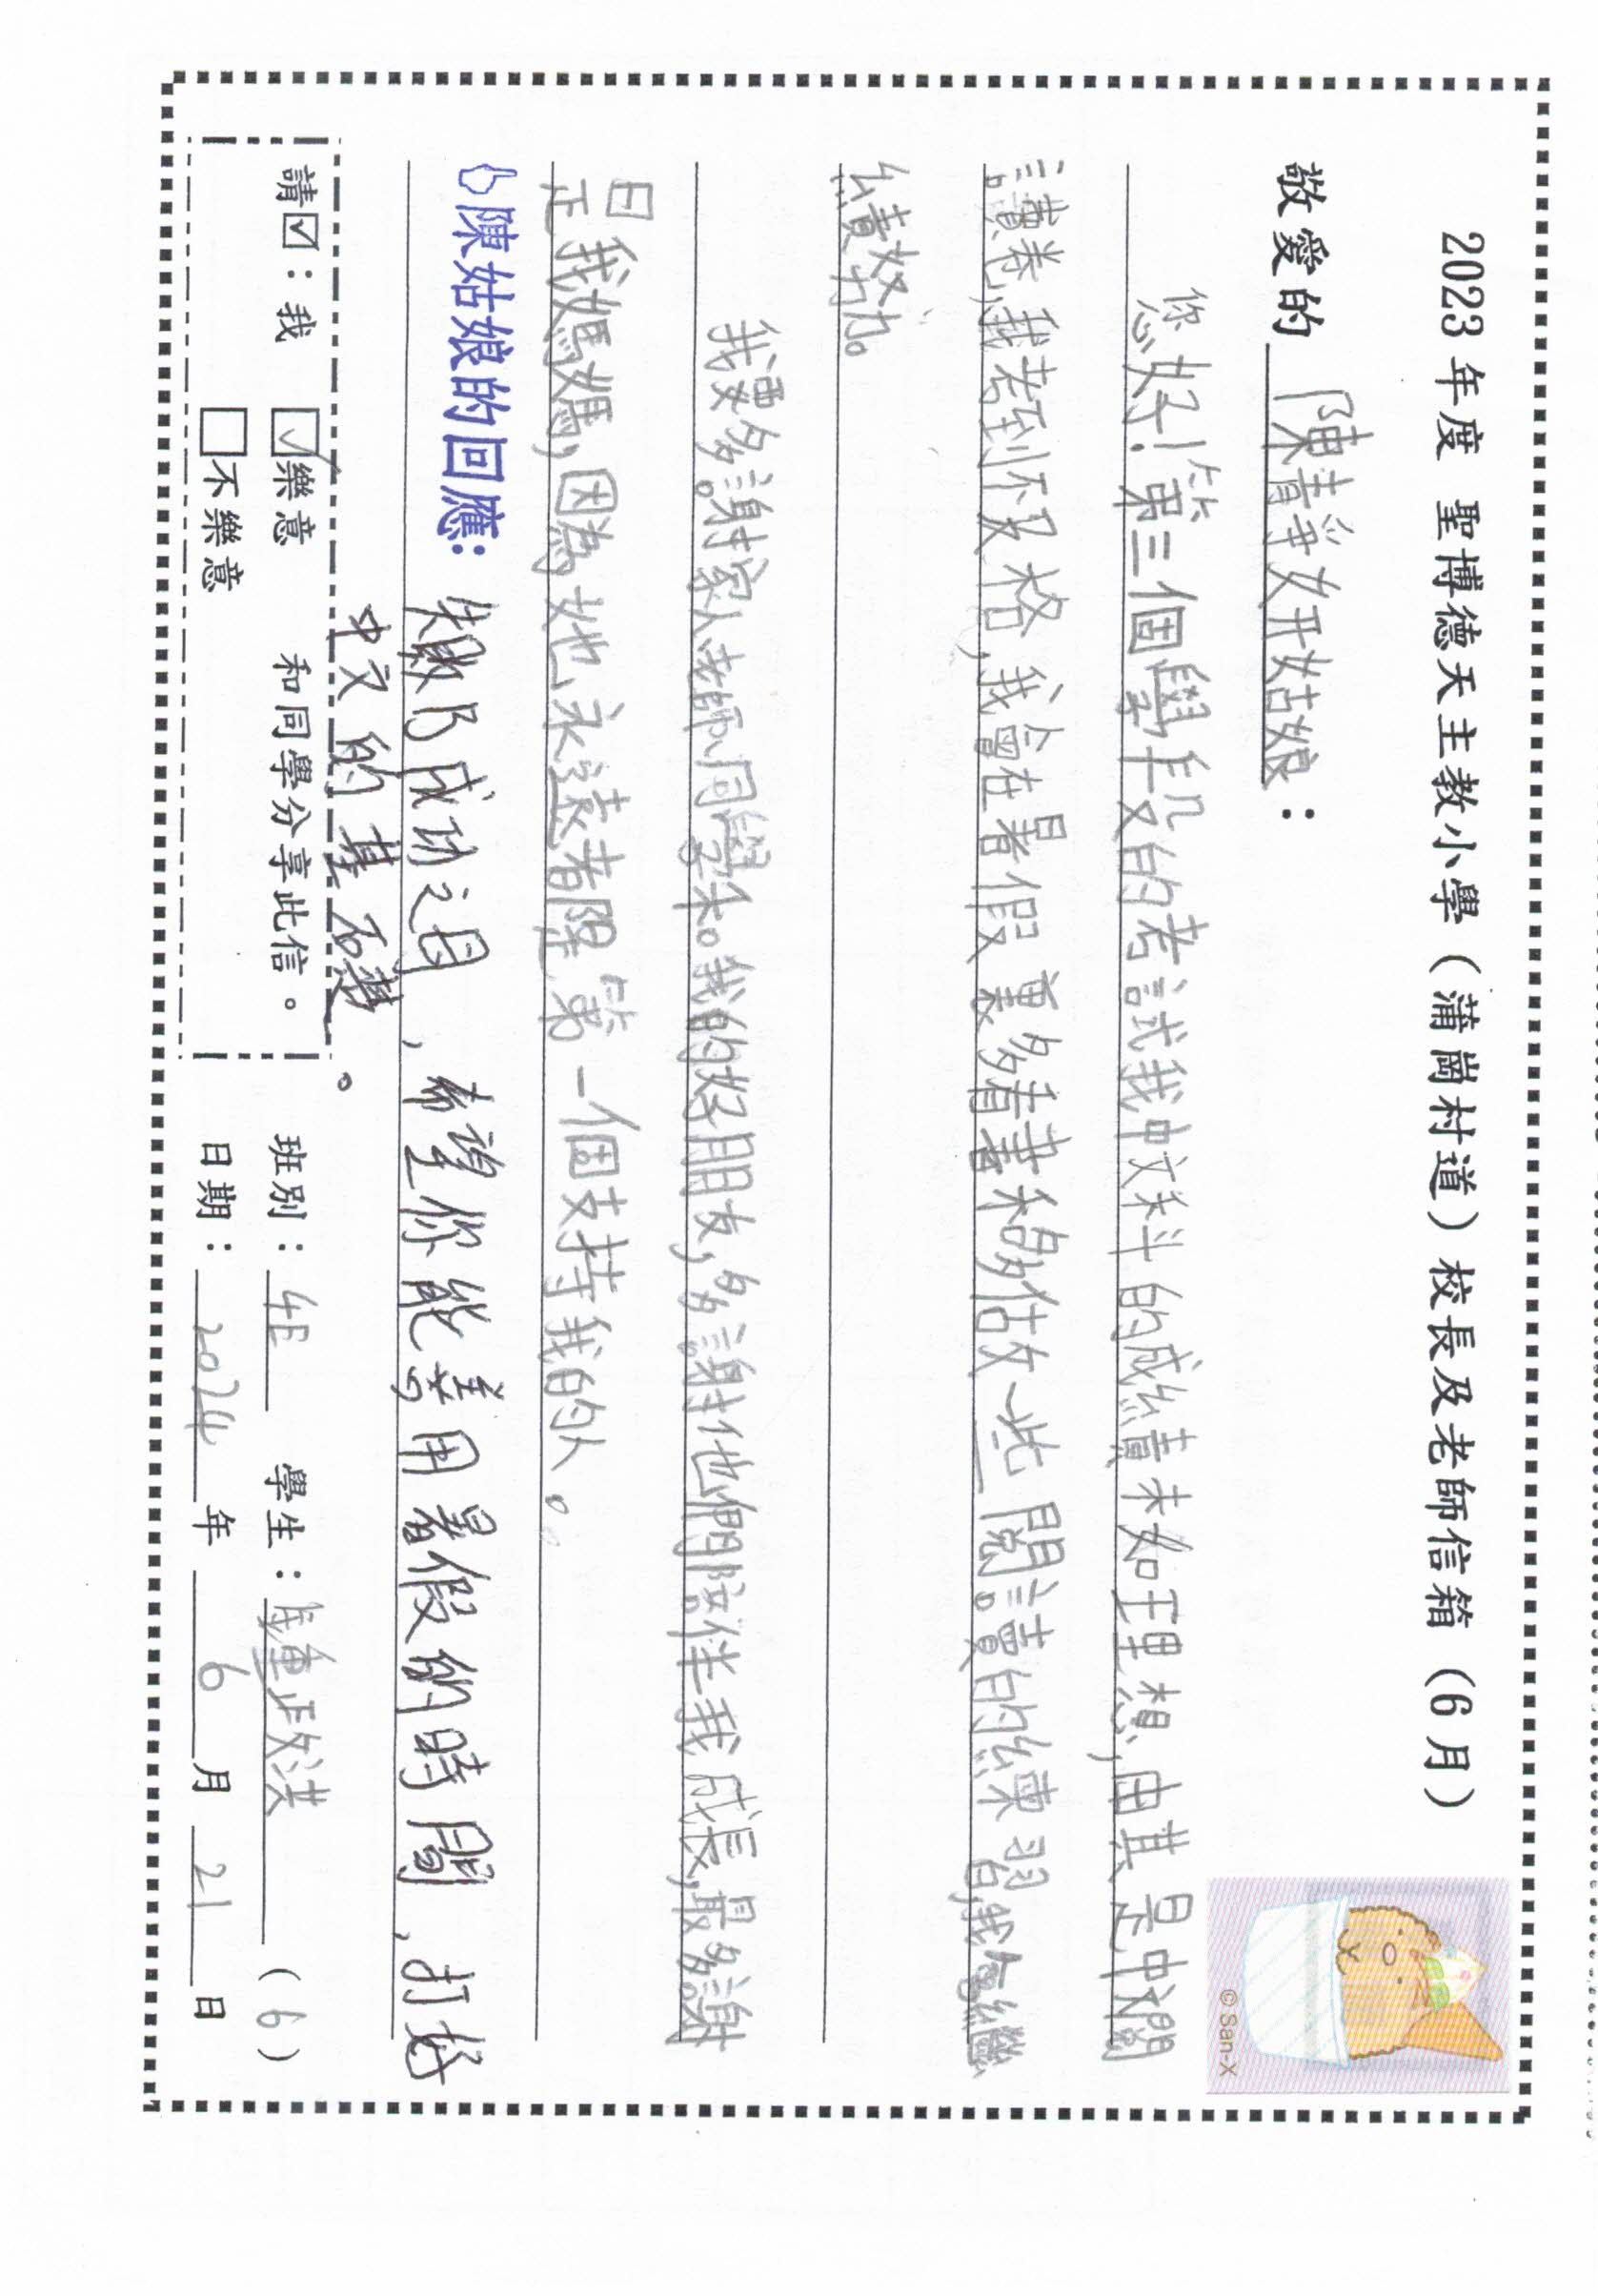 2023 年度 聖博德天主教小學（蒲崗村道）校長及老師信箱（6月）
敬愛的 陳靜妍姑娘：
您好！第三個學段的考試我中文科的成績未如理想，由其是中文閱
讀卷，我考到不及格，我會在暑假裏多看書和多做一些閱讀的練習，我會繼
續努力。
我要多謝家人、老師、同學和我的好朋友，多謝他們陪伴我成長，最多謝
是我媽媽，因為她永遠都是第一個支持我的人。
陳姑娘的回應： 失敗乃成功之母，希望你能善用暑假的時間，打好
中文的基礎。
請☑：我 ☑樂意 和同學分享此信。
□不樂意
班別：4E 學生：鍾政洪 (6)
日期：2024年6月21日
© San-X